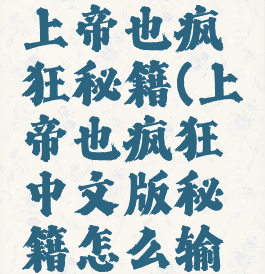 上帝也疯
狂秘籍(上
帝也疯狂
中文版秘
籍怎么输